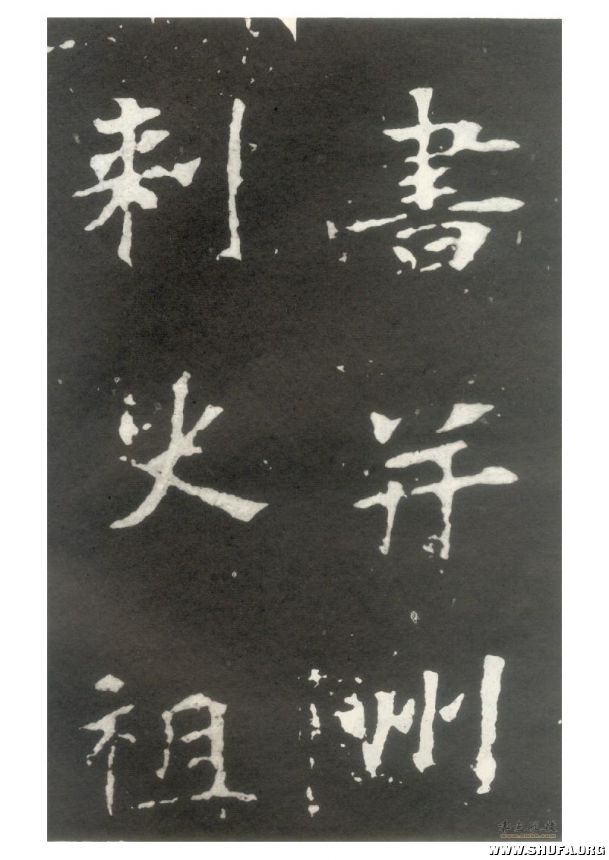 書并州
刺史祖
WWW.SHUFA.ORG